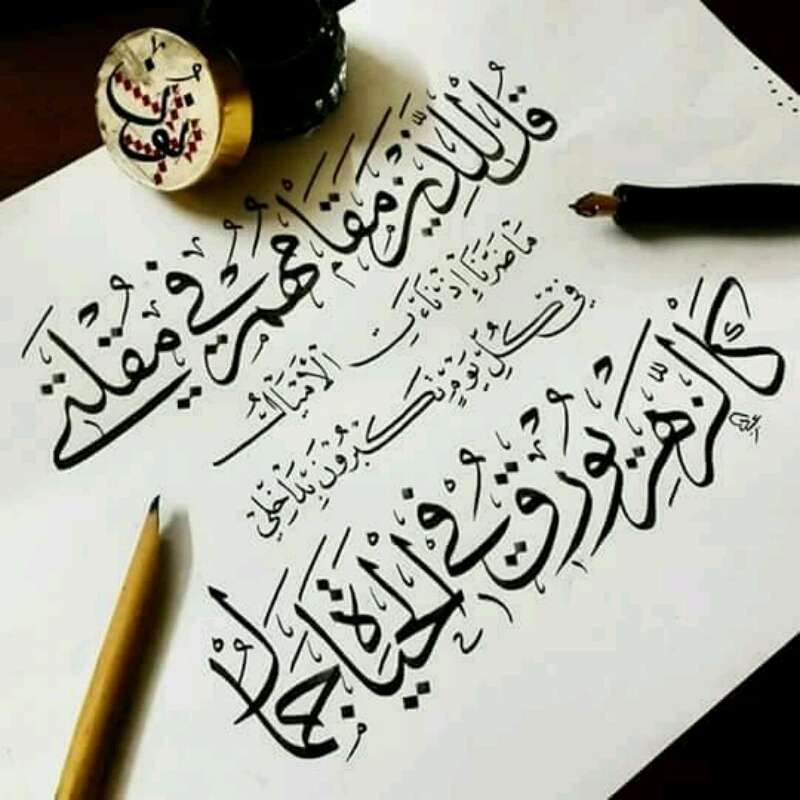 قُل لِلَّذِينَ مَقَامُهُمْ فِي مُقْلَتِي
مَا ضَرَّنَا إِذْ نَاءَتِ الْأَمْيَالُ
فِي كُلِّ يَوْمٍ تَكْبُرُونَ بِدَاخِلِي
كَالزَّهْرِ يُورِقُ فِي الْحَيَاةِ جَمَالُ